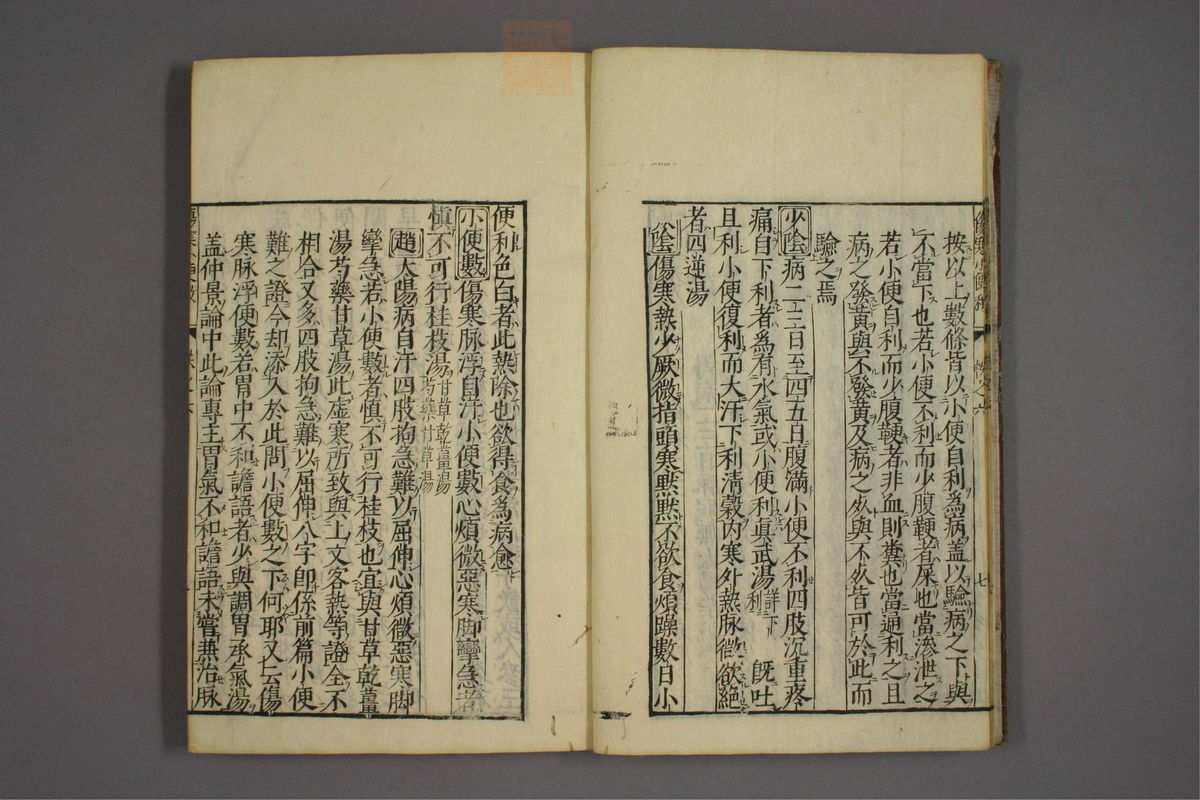 按以上數條皆以小便自利為病盖以驗病之下與
不當下也若小便不利而少腹鞕者尿也當滲泄之
若小便自利而少腹鞕者非血則糞也當通利之且
病之發黃與不發黃及病之死與不死皆可於此而
驗之焉
少陰病二三日至四五日腹滿小便不利四肢沉重疼
痛自下利者為有水氣或小便利眞武湯詳下利 旣吐
且利小便復利而大汗下利清穀內寒外熱脉微欲絕
者四逆湯
厥陰傷寒熱少厥微指頭寒黙黙不欲食煩躁數日小
便利色白者此熱除也欲得食為病愈
小便數傷寒脉浮自汗小便數心煩微惡寒脚攣急者
慎不可行桂枝湯甘草乾薑湯芍藥甘草湯
趙太陽病自汗四肢拘急難以屈伸心煩微惡寒脚
攣急若小便數者慎不可行桂枝也宜與甘草乾薑
湯芍藥甘草湯此虛寒所致與上文客熱等證全不
相合又多四肢拘急難以屈伸八字卽係前篇小便
難之證今却添入於此問小便數之下何耶又云傷
寒脉浮便數若胃中不和譫語者少與調胃承氣湯
盖仲景論中此論專主胃氣不和譫語未嘗兼治脉